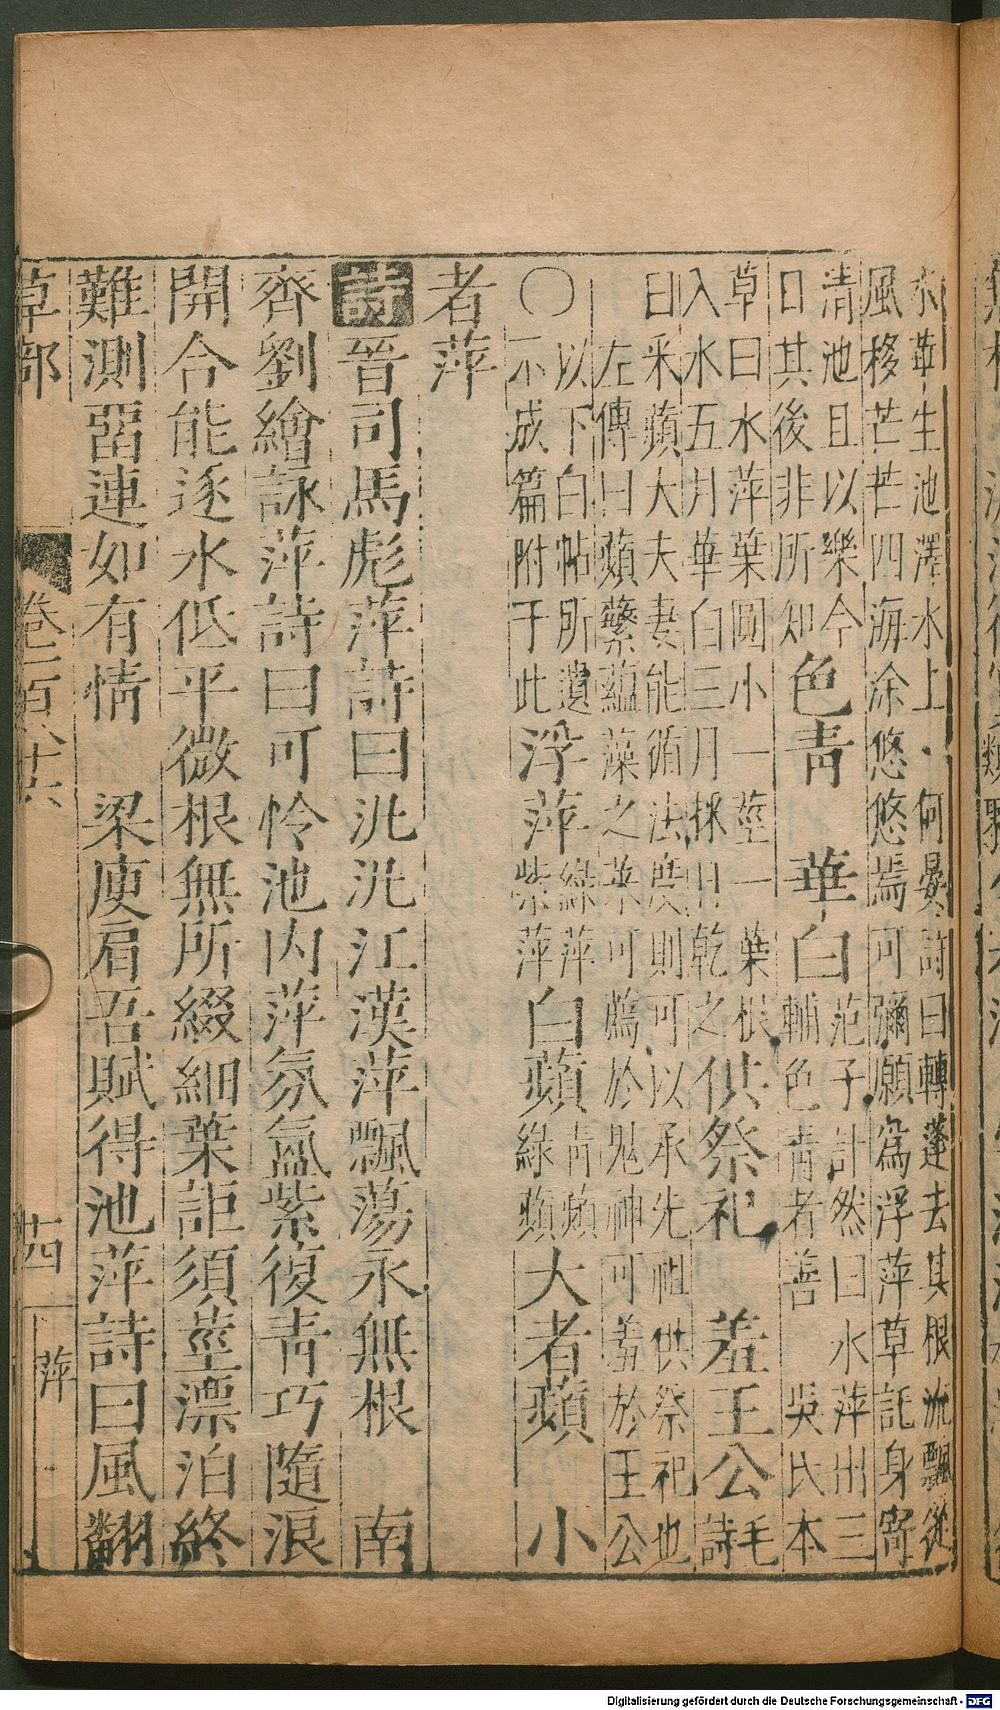 水華生池澤水上 何晏詩曰轉蓬去其根流飄從
風移芒芒四海涂悠悠焉可彌願為浮萍草託身寄
清池且以樂今
日其後非所知
色青 華白
范子計然曰水萍出三
輔色青者善 吳氏本
草曰水萍葉圓小一莖一葉根
入水五月華白三月採日乾之
供祭祀 羞王公
毛
詩
曰采蘋大夫妻能循法度則可以承先祖供祭祀也
左傳曰蘋蘩蘊藻之菜可薦於鬼神可羞於王公
〇
以下白帖所遺
不成篇附于此
浮萍
綠萍
紫萍
白蘋
青蘋
綠蘋
大者蘋 小
者萍
詩 晉司馬彪萍詩曰汎汎江漢萍飄蕩永無根 南
齊劉繪詠萍詩曰可怜池内萍氛氳紫復青巧隨浪
開合能逐水低平微根無所綴細葉詎須莖漂泊終
難測畱連如有情 梁庾肩吾賦得池萍詩曰風翻
草部 卷一百八十六 十四 萍
Digitalisierung gefördert durch die Deutsche Forschungsgemeinschaft - DFG